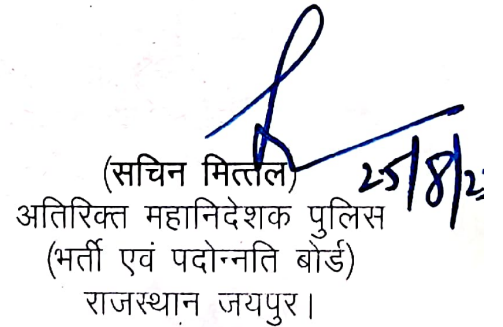 (सचिन मित्तल)
25/8/2
अतिरिक्त महानिदेशक पुलिस
(भर्ती एवं पदोन्नति बोर्ड)
राजस्थान जयपुर।